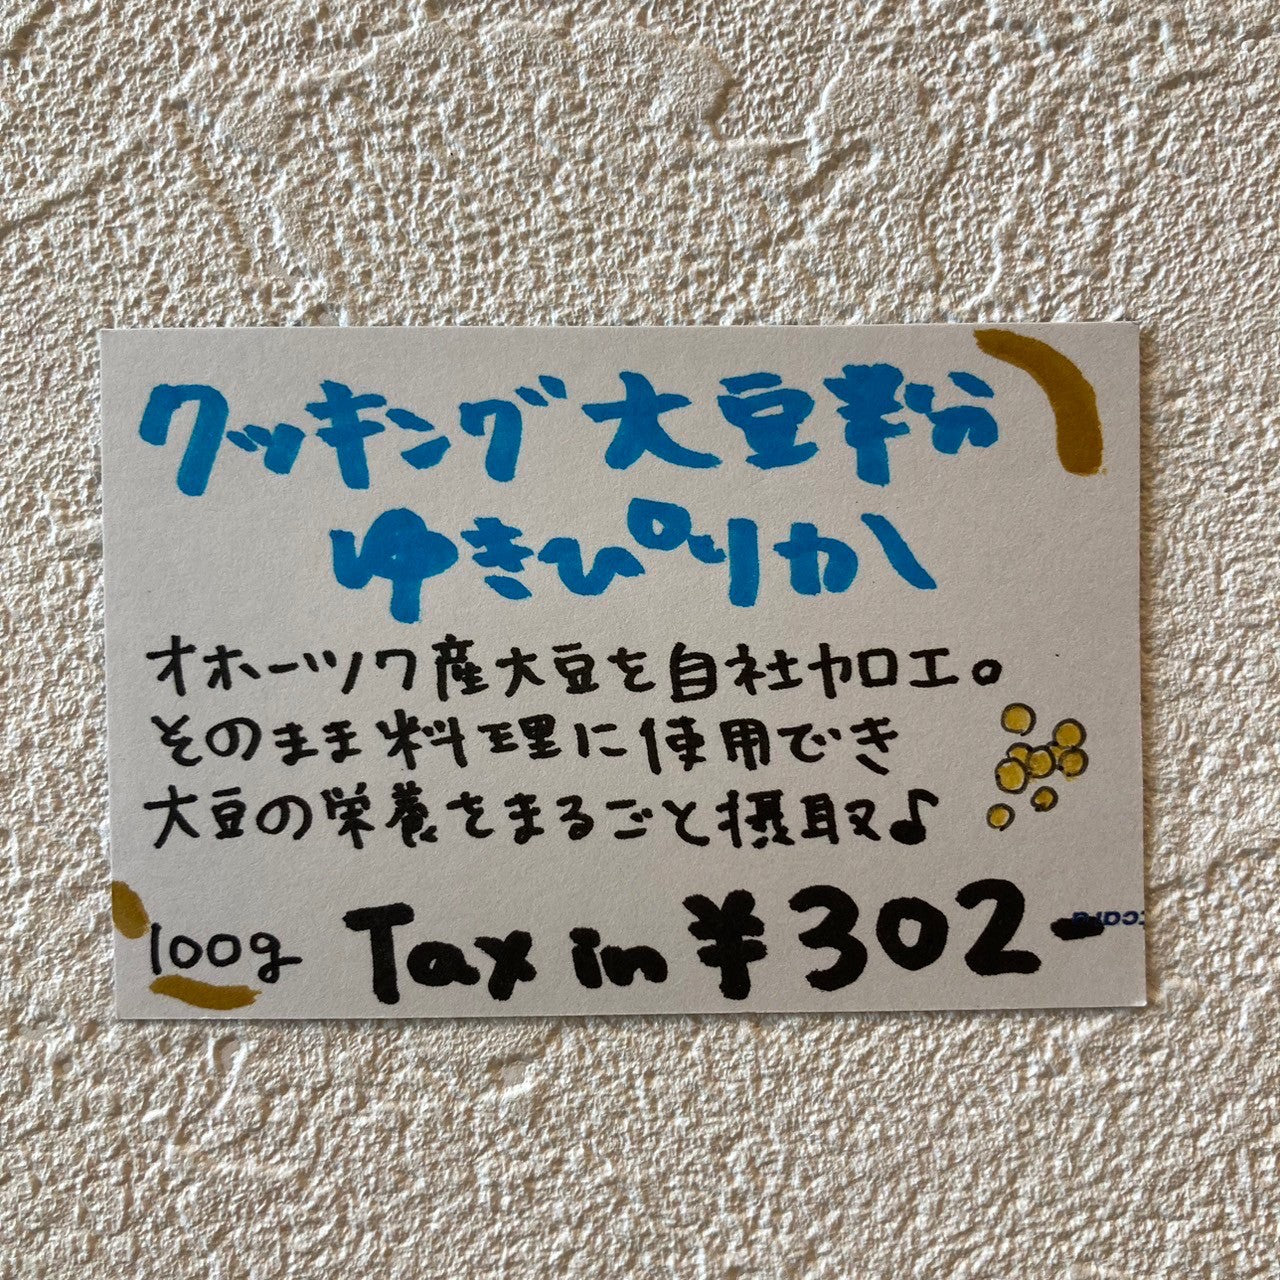 クッキング大豆粉
ゆきぴりか
オホーツク産大豆を自社加工。
そのまま料理に使用でき
大豆の栄養をまるごと摂取♪
100g Tax in ¥302-